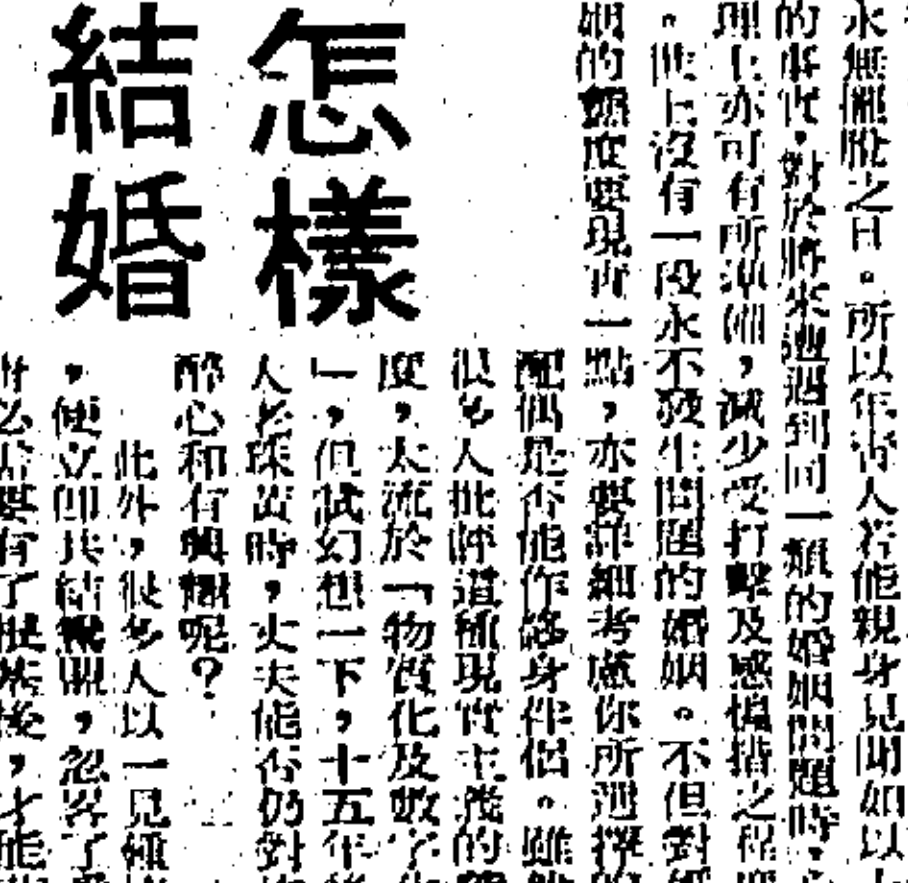 怎樣
結婚
永無僵脫之日。所以年青人若能親身見聞如以
的事實,對於將來遭遇到同一類的婚姻問題時,心
理上亦可有所準備,減少受打擊及感情措之程
。世上沒有一段永不發生問題的婚姻。不但對
姻的態度要現實一點,亦要詳細考慮你所選擇的
配偶是否能作終身伴侶。雖
很多人批評這種現實主義的
度,太流於「物質化及數字化
」,但試幻想一下,十五年
人老珠黃時,丈夫能否仍對
醉心和有興趣呢?
此外,很多人以一見鍾
,便立即共結親關,忽畧了
什么需要有了根基後,才能